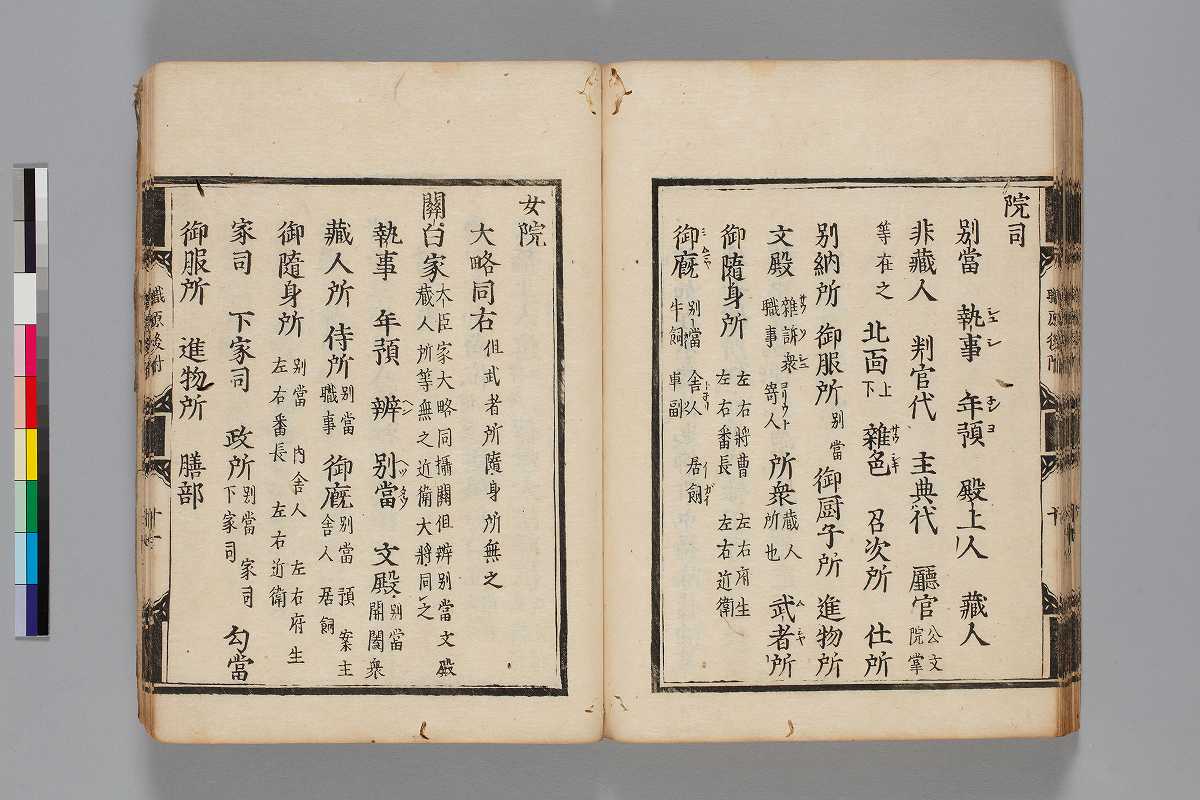 院司
別當　執事　年預　殿上人　藏人
非藏人　判官代　主典代　廳官 公文 院掌
等在之　北面 上 下　雜色　召次所　仕所
別納所　御服所 別當　御厨子所　進物所
文殿 雜訴衆 寄人 職事　所衆 蔵人 所也　武者所
御隨身所 左右將曹 左右府生 左右番長 左右近衛
御廐 別當 舎人 居飼 牛飼 車副
女院
大略同右 但武者所隨身所無之
關白家 大臣家大略同攝關但辨別當文殿 蔵人所等無之近衛大將同之
執事　年預　辨　別當　文殿 別當 開闔衆
藏人所　侍所 別當 職事　御廐 別當 預 案主 舎人 居飼
御隨身所 別當 内舎人 左右府生 左右番長 左右近衛
家司　下家司　政所 別當 家司 下家司　勾當
御服所　進物所　膳部
職原後付
十一